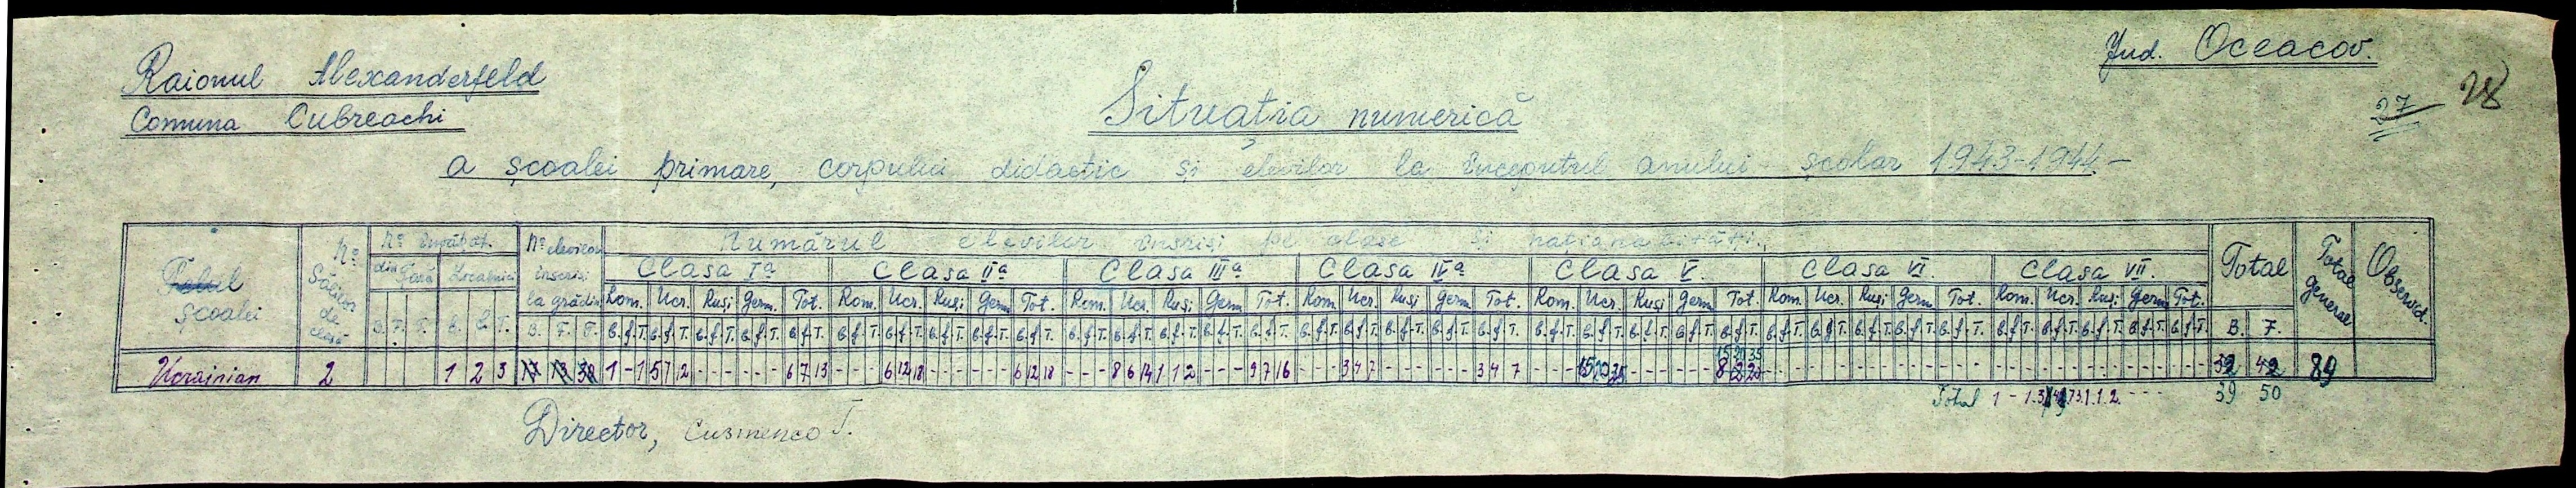 Jud. Oceacov.
Raionul Alexanderfeld
27 28
Comuna Cubreachi
Situația numerică
a școalei primare, corpului didactic și elevilor la începutul anului școlar 1943-1944-
Felul Școalei
Nº Sălilor de clasă
Nº învățăt.
din Țară Localnici
Nº elevilor înscriși la grădin.
Numărul elevilor înscriși pe clase și naționalități.
Clasa Iª Clasa IIª Clasa IIIª Clasa IVª Clasa V. Clasa VI. Clasa VII.
Total
Total general
Observ.
Rom. Ucr. Ruși Germ. Tot. Rom. Ucr. Ruși Germ. Tot. Rom. Ucr. Ruși Germ. Tot. Rom. Ucr. Ruși Germ. Tot. Rom. Ucr. Ruși Germ. Tot. Rom. Ucr. Ruși Germ. Tot. Rom. Ucr. Ruși Germ. Tot.
B. F. T. B. F. T. B. F. T. B. f. T. B. f. T. B. f. T. B. f. T. B. f. T. B. f. T. B. f. T. B. f. T. B. f. T. B. f. T. B. f. T. B. f. T. B. f. T. B. f. T. B. f. T. B. f. T. B. f. T. B. f. T. B. f. T. B. f. T. B. f. T. B. f. T. B. f. T. B. f. T. B. f. T. B. f. T. B. f. T. B. f. T. B. f. T. B. f. T. B. f. T. B. f. T. B. f. T. B. f. T. B. f. T. B. F.
15 20 35
Ucrainian 2 1 2 3 17 13 30 1 - 1 5 7 12 - - - - - - 6 7 13 - - - 6 12 18 - - - - - - 6 12 18 - - - 8 6 14 1 1 2 - - - 9 7 16 - - - 3 4 7 - - - - - - 3 4 7 - - - 15 20 35 - - - - - - 8 12 20 - - - 32 42 89
Total 1 - 1. 73. 1. 1. 2. - - - 39 50
Director, Cusmenco T.